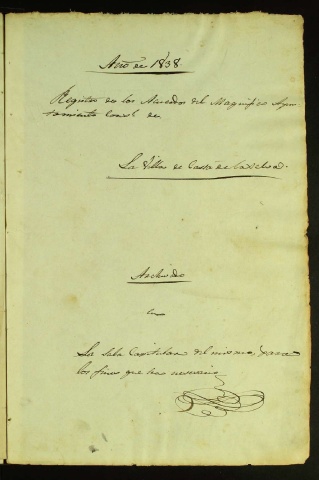 Año de 1838
Registro de los Acuerdos del Magnifico Ayun-
tamiento Const.l de
La Villa de Cassá de la Selva.
Archivado
en
La Sala Capitular del mismo, para
los fines que haz necesario